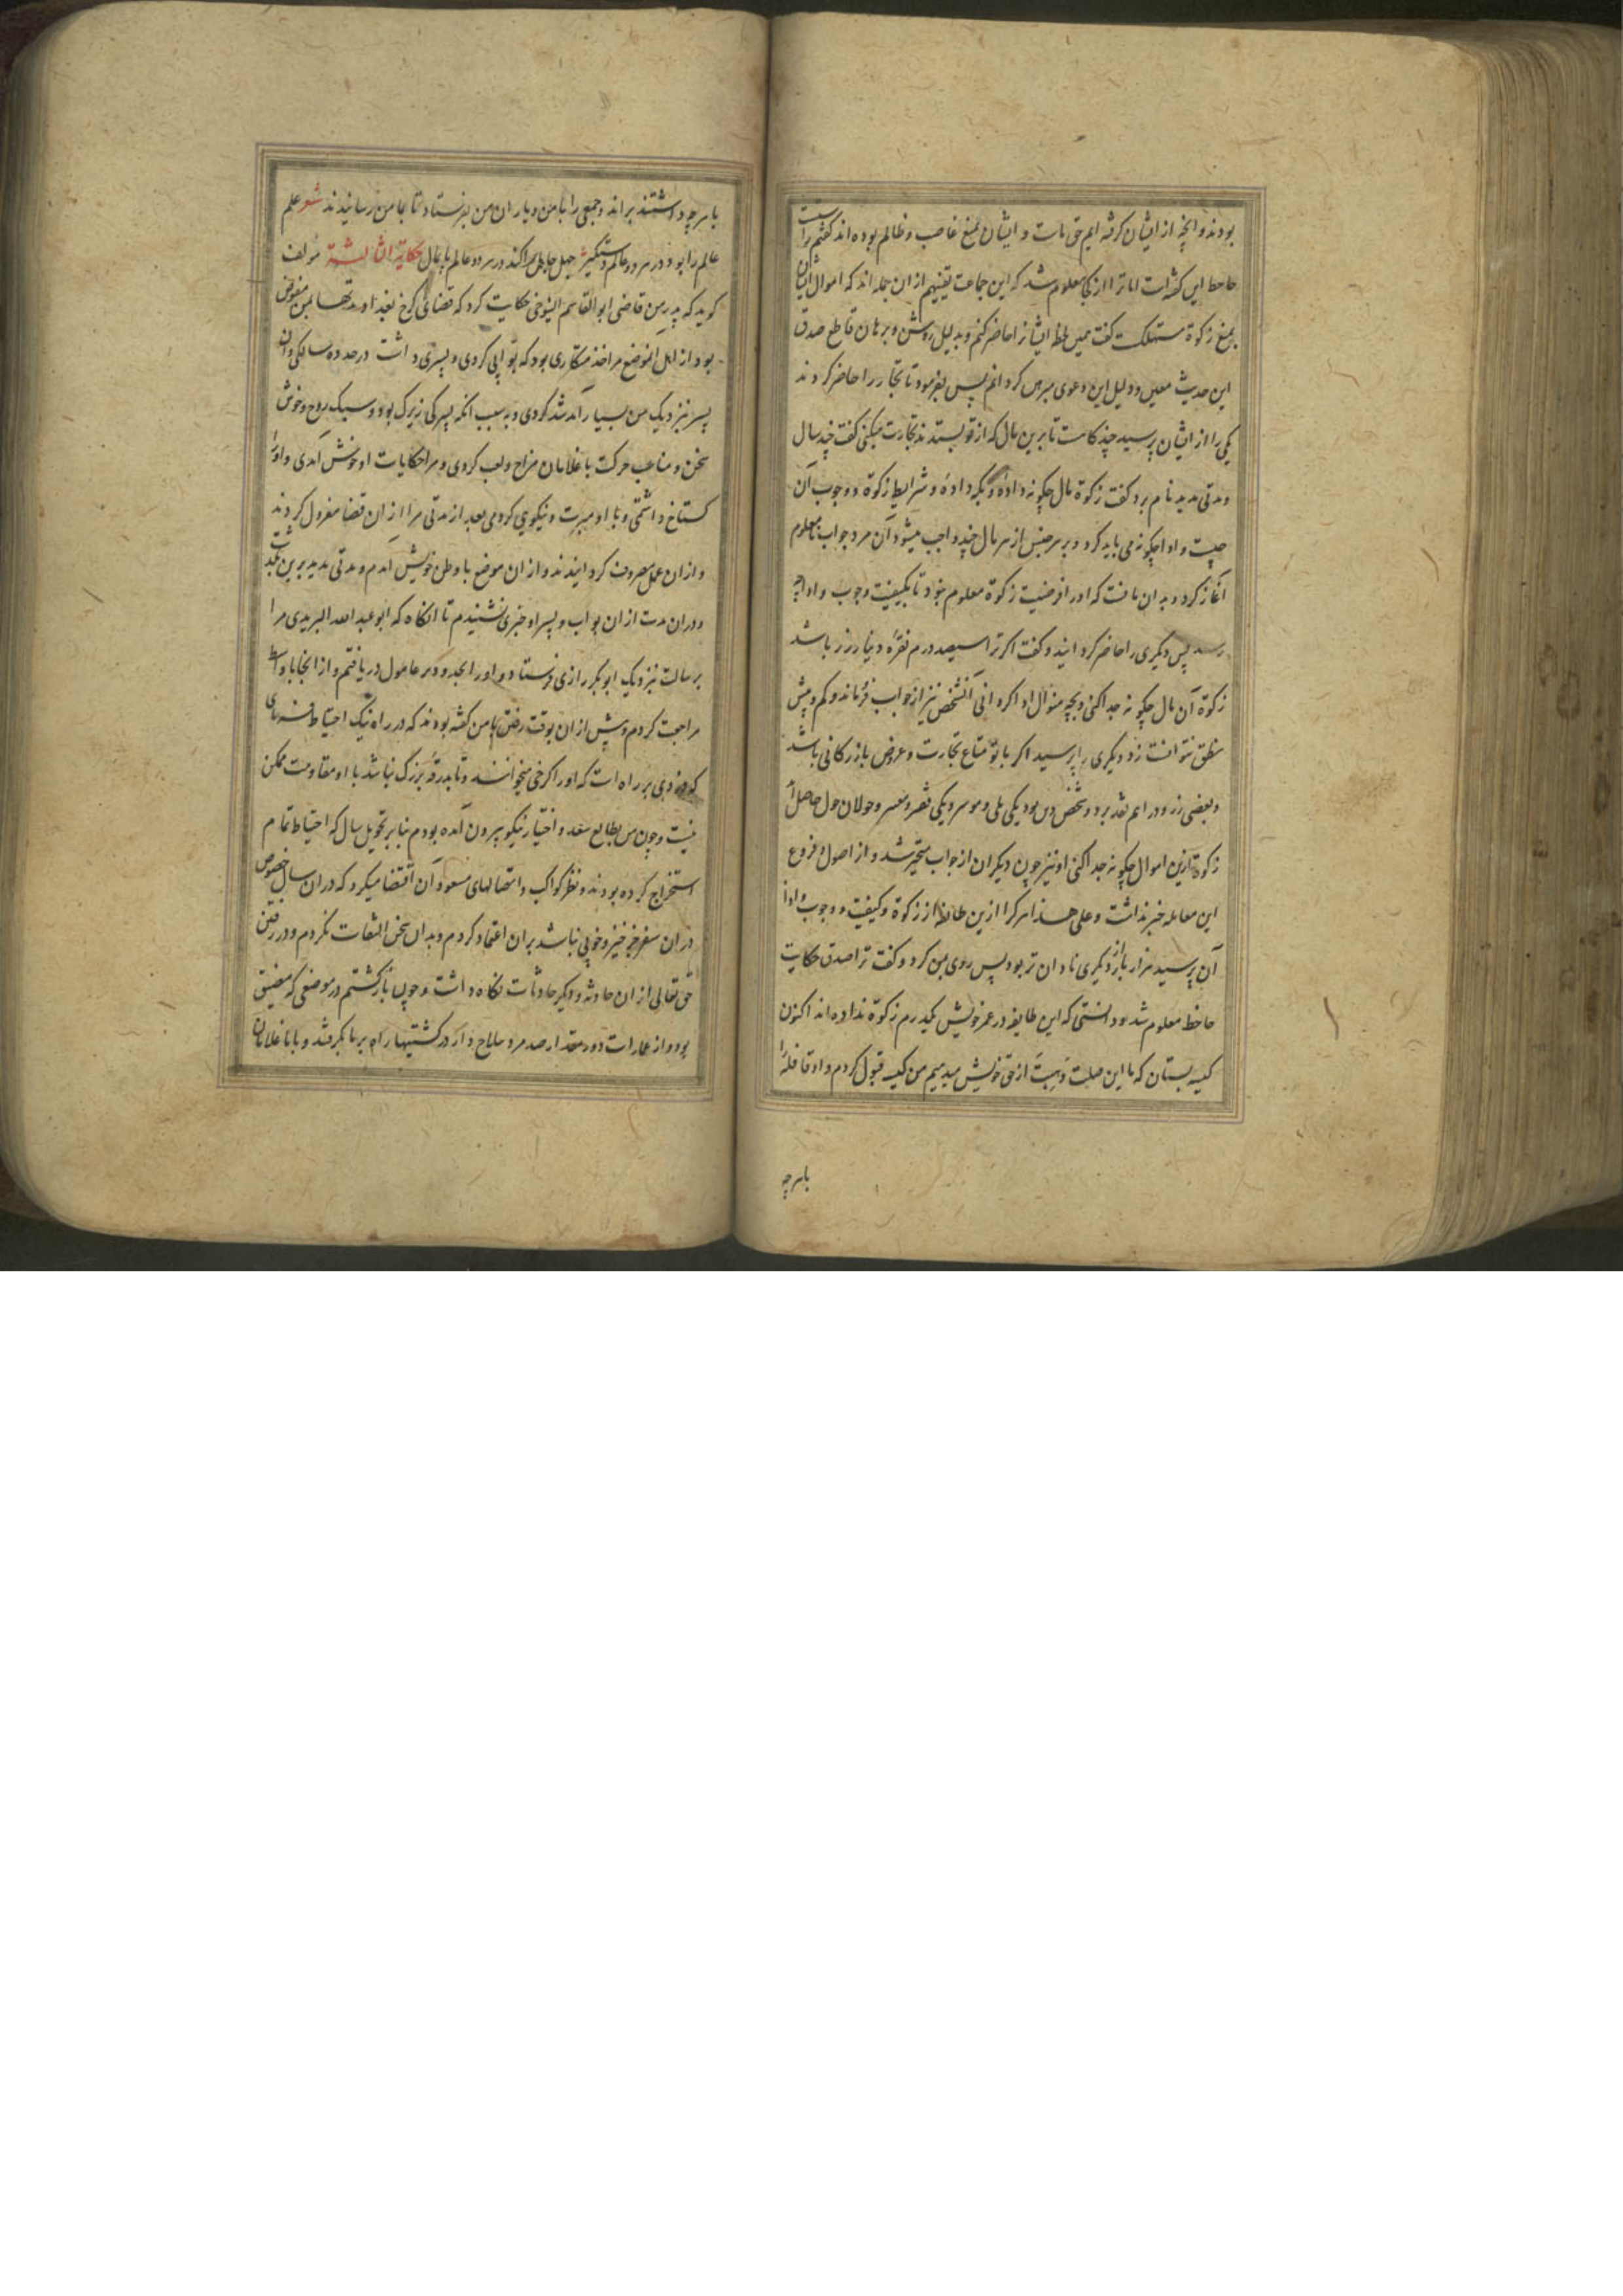 بودند و انچه از ایشان گرفته ایم حق ماست و ایشان بمنع غاصب و ظالم بوده اند گفتم راست
جاحظ این گفته است اما ترا از کجا معلوم شد که این جماعت بتعیینهم از ان جمله اند که اموال ایشان
بمنع زکوة مستهلکست گفت همین لحظه ایشانرا حاضر کنم و بدلیل روشن و برهان قاطع صدق
این حدیث معین و دلیل این دعوی مبرهن کردانم پس بفرمود تا تجار را حاضر کردند
یکی را از ایشان پرسید چند کاهست تا برین مال که از تو بستدند تجارت میکنی گفت چند سال
و مدتی مدید نام برد گفت زکوة مال چگونه دادهٔ و بکه دادهٔ و شرایط زکوة و وجوب آن
چیست و ادا چگونه می باید کرد و بر هر جنس از هر مال چند واجب میشود آن مرد جواب نامعلوم
آغاز کرد و بدان مانست که او را فرضیت زکوة معلوم نبود تا بکیفیت وجوب و ادا چه
رسد پس دیگری را حاضر کردانید و گفت اگر ترا سیصد درم نقره و دینار زر باشد
زکوة آن مال چگونه جدا کنی و بچه منوال ادا کردانی آنشخص نیز از جواب فرو ماند و کم و بیش
نطق نتوانست زد و دیگری را پرسید اگر با تو متاع تجارت و عروض بازرگانی باشد
و بعضی زر و دراهم نقد بر دو شخص دین بود یکی ملی و موسر و یکی فقیر و معسر و حولان حول حاصل آید
زکوة ازین اموال چگونه جدا کنی او نیز چون دیگران از جواب متحیر شد و از اصول و فروع
این معامله خبر نداشت و علی هذا هر کرا ازین طایفه از زکوة و کیفیت و وجوب و اداء
آن پرسید هزار بار از دیگری نادان تر بود پس روی بمن کرد و گفت ترا صدق حکایت
جاحظ معلوم شد و دانستی که این طایفه در عمر خویش یکدرم زکوة نداده اند اکنون
کیسه بستان که ما این صلت و هبت از حق خویش میدهیم من کیسه قبول کردم و او قافله را
باهرچه
باهرچه داشتند براند و جمعی را با من و یاران من بفرستاد تا بمامن رسانیدند شعر علم
عالم را بود در هر دو عالم دستگیر جهل جاهل را کند در هر دو عالم پایمال حکایة الثالثة مولف
گوید که پدر من قاضی ابو القاسم التنوخی حکایت کرد که قضای کرخ بغداد مدتها بمن مفوض
بود از اهل انموضع مرا خدمتکاری بود که بوابی کردی و پسری داشت در حد ده سالگی و ان
پسر نزدیک من بسیار آمد شد کردی و بسبب انکه پسرکی زیرک بود و سبک روح و خوش
سخن و مناسب حرکت با غلامان مزاح و لعب کردی و مرا حکایات او خوش آمدی و او را
گستاخ داشتمی و با او مبرت و نیکویی کردمی بعد از مدتی مرا از ان قضا معزول کردند
و از ان عمل مصروف کردانیدند و از ان موضع با وطن خویش امدم و مدتی مدید برین بگذشت
و در ان مدت از ان بواب و پسر او خبری نشنیدم تا انگاه که ابو عبد الله البریدی مرا
برسالت نزدیک ابو بکر رازی فرستاد و او را بحدود دیر عاقول دریافتم و از انجا با واسط
مراجعت کردم و پیش از ان بوقت رفتن با من گفته بودند که در راه نیک احتیاط فرمای
که دزدی بر راه است که او را کرخی میخوانند و تا بدرقهٔ بزرگ نباشد با او مقاومت ممکن
نیست و چون من بطالع سعد و اختیار نیکو بیرون آمده بودم بنا بر تحویل سال که احتیاط تمام
استخراج کرده بودند و نظر کواکب و اتصالهای مسعود آن اقتضا میکرد که در ان سال بخصوص
در ان سفر جز خیر و خوبی نباشد بر ان اعتماد کردم و بدان سخن التفات نکردم و در رفتن
حق تعالی از ان حادثه و دیگر حادثات نگاه داشت و چون بازگشتم در موضعی که مضیق
بود و از عمارات دور مقدار صد مرد سلاح دار در کشتیها راه بر ما بگرفتند و با ما غلامان